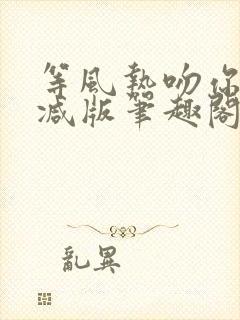 等風熱吻你
減版筆趣閣
亂異